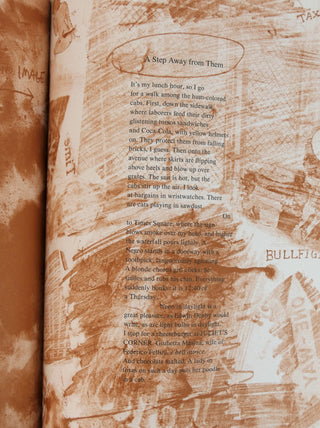 A Step Away from Them
It's my lunch hour, so I go
for a walk among the hum-colored
cabs. First, down the sidewalk
where laborers feed their dirty
glistening torsos sandwiches
and Coca-Cola, with yellow helmets
on. They protect them from falling
bricks, I guess. Then onto the
avenue where skirts are flipping
above heels and blow up over
grates. The sun is hot, but the
cabs stir up the air. I look
at bargains in wristwatches. There
are cats playing in sawdust.
On
to Times Square, where the sign
blows smoke over my head, and higher
the waterfall pours lightly. A
Negro stands in a doorway with a
toothpick, languorously agitating.
A blonde chorus girl clicks: he
smiles and rubs his chin. Everything
suddenly honks: it is 12:40 of
a Thursday.
Neon in daylight is a
great pleasure, as Edwin Denby would
write, as are light bulbs in daylight.
I stop for a cheeseburger at JULIET'S
CORNER. Giulietta Masina, wife of
Federico Fellini, è bell' attrice.
And chocolate malted. A lady in
foxes on such a day puts her poodle
in a cab.
TAX
BULLFIG